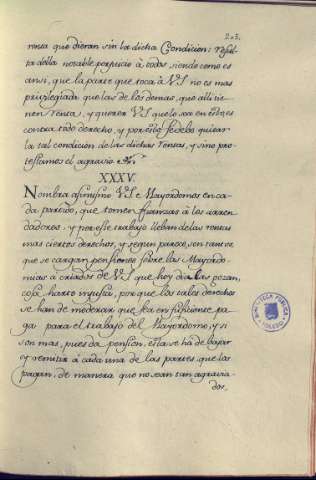 203.
renta que dieran sin la dicha Condicion: resul
ta della notable perjuicio à todos, siendo como es
ansi, que la parte que toca à VS no es mas
privilegiada que las de los demas, que alli tie-
nen Renta, y querer VS que lo sea en esto, es
contra todo derecho, y por esto se debe quitar
la tal condicion de las dichas Rentas, y sino pro-
testamos el agravio
XXXV.
Nombra asimismo VS Mayordomos en ca-
da partido, que tomen fianzas à los arren-
dadores: y por este trabajo lleban de las rentas
mas ciertos derechos, y segun parece, son tantos
que se cargan pensiones sobre las Mayordo-
mias à criados de VS que hoy dia las gozan,
cosa harto injusta, porque los tales derechos
se han de moderar que sea suficiente pa-
ga para el trabajo del Mayordomo, y si
son mas, pues da pension, esta se ha de bajar
y remitir à cada una de las partes, que los
pagan, de manera que no sean tan agravia-
dos,
BIBLIOTECA PUBLICA
TOLEDO